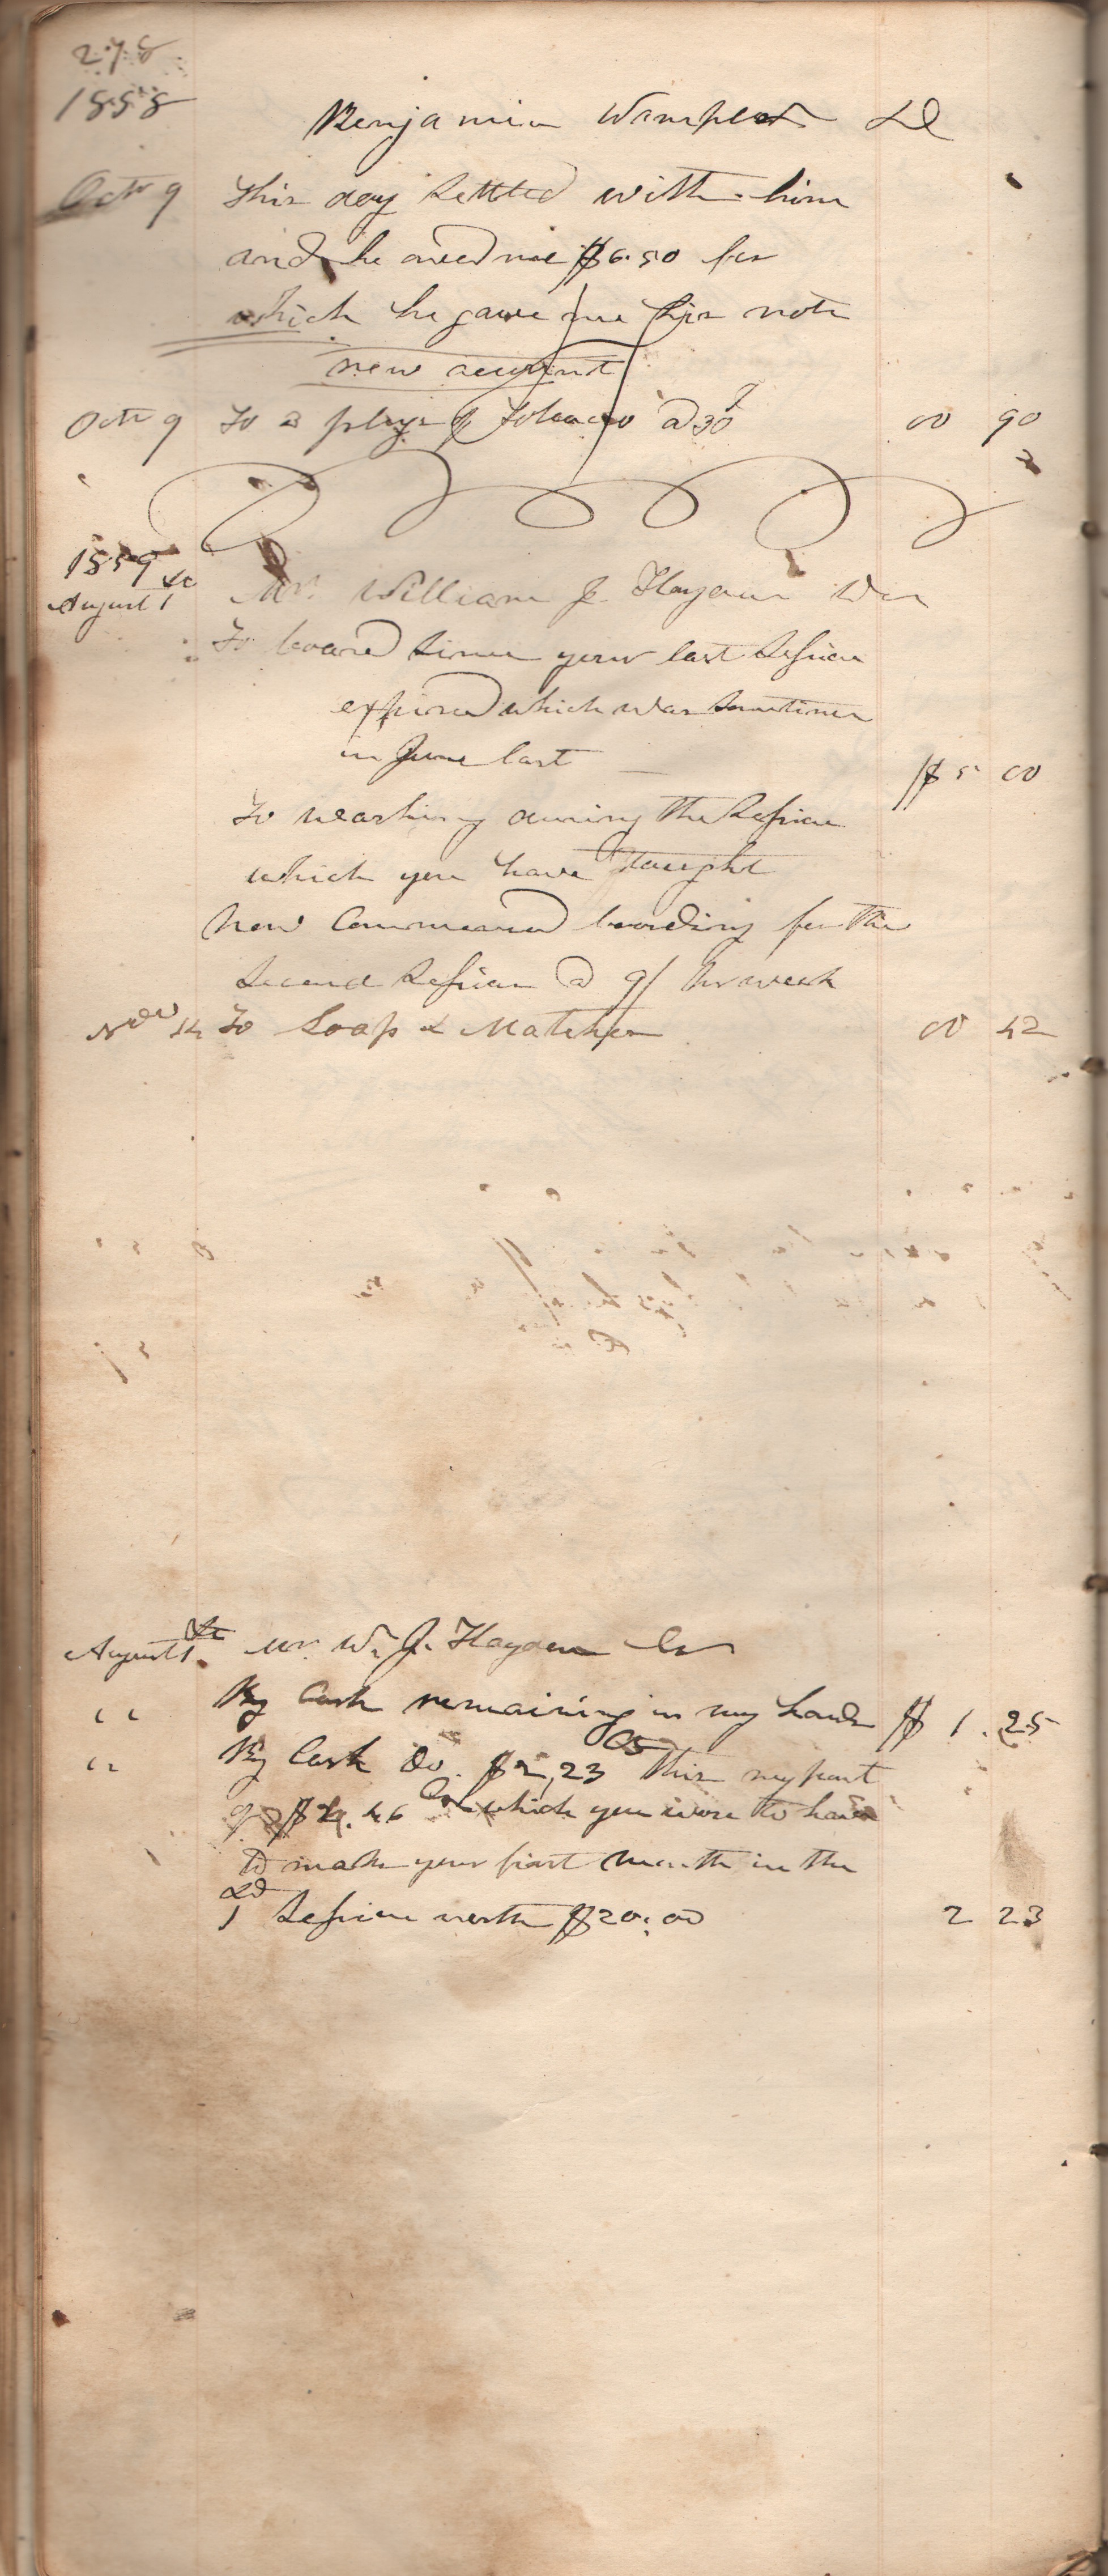 278
1858
Benjamin Wampler Dr
Octr 9 This day settled with him
and he owed me $6.50 for
which he gave me his note
new account
Octr 9 To 3 plugs of Tobacco @ 30 00 90
1859
August 1st Mr. William J. Hayden Der
To board since your last Session
expired which was sometimes
in June last $5 00
To washing during the Session
which you have taught
New Commenced boarding for the
second Session @ 9/ Per week
Nov 14 To Soap & Matches 00 42
August 1st Mr. W. J. Hayden Cr
" By Cash remaining in my hands $ 1.25
" By Cash Do. $2,23 cts this my part
of $4.46 cts which you were to have
to make your first month in the
1 Session worth $20.00 2 23